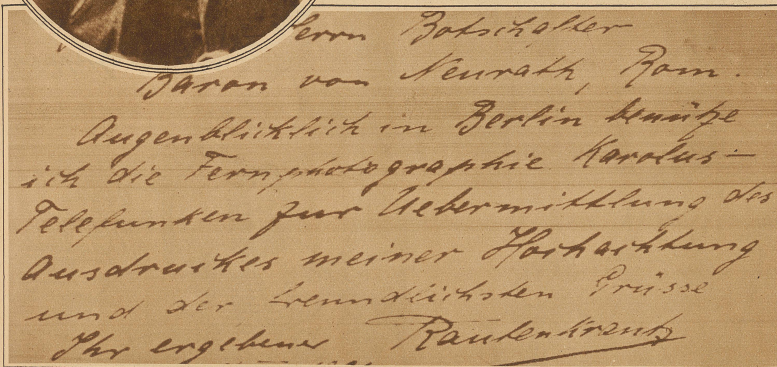 Herrn Botschafter
Baron von Neurath, Rom.
Augenblicklich in Berlin benütze
ich die Fernphotographie Karolus-
Telefunken zur Uebermittlung des
Ausdruckes meiner Hochachtung
und der freundlichsten Grüsse
Ihr ergebener Rautenkrantz